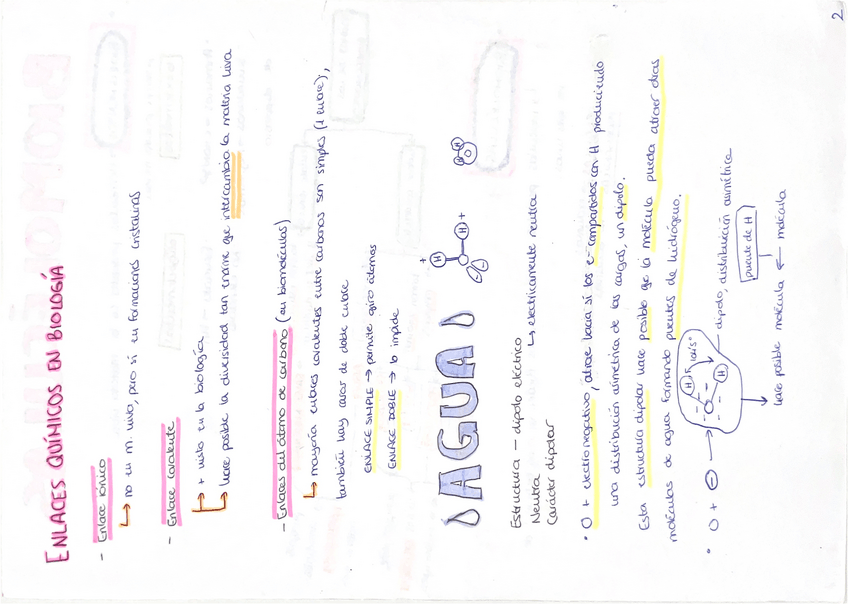 2
ENLACES QUÍMICOS EN BIOLOGÍA
- Enlace iónico
↳ no en m. viva, pero sí en formaciones cristalinas
- Enlace covalente
↳ + visto en la biología
↳ hace posible la diversidad tan enorme que intercambia la materia viva
- Enlaces del átomo de carbono (en biomoléculas)
↳ mayoría enlaces covalentes entre carbonos son simples (1 enlace),
también hay casos de doble enlace
ENLACE SIMPLE → permite giro átomos
ENLACE DOBLE → lo impide
AGUA
+
H
H +
H
H
O
Estructura - dipolo eléctrico
Neutra ↳ eléctricamente neutra
Carácter dipolar
• O + electronegativo, atrae hacia sí los e- compartidos con H produciendo
una distribución asimétrica de las cargas, un dipolo.
Esta estructura dipolar hace posible que la molécula pueda atraer otras
moléculas de agua formando puentes de hidrógeno.
• O + ⊖ →
H
H
O
- dipolo, distribución asimétrica
puente de H
hace posible molécula ← molécula